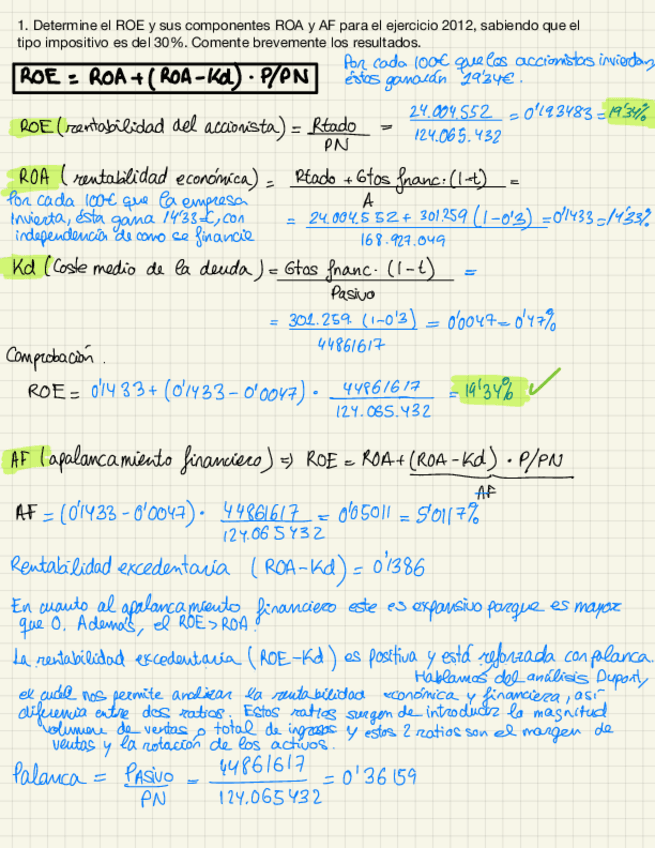 1. Determine el ROE y sus componentes ROA y AF para el ejercicio 2012, sabiendo que el
tipo impositivo es del 30%. Comente brevemente los resultados.
ROE = ROA + (ROA-Kd) · P/PN
Por cada 100€ que los accionistas inviertan,
éstos ganarán 19'34€.
ROE (rentabilidad del accionista) = Rtado / PN = 24.004.552 / 124.065.432 = 0'193483 = 19'34%
ROA (rentabilidad económica) = Rtado + Gtos financ. (1-t) / A =
Por cada 100€ que la empresa
invierta, ésta gana 14'33€, con
independencia de como se financie
= 24.004.552 + 301.259 (1-0'3) / 168.927.049 = 0'1433 = 14'33%
Kd (Coste medio de la deuda) = Gtos financ. (1-t) / Pasivo =
= 301.259. (1-0'3) / 44861617 = 0'0047 = 0'47%
Comprobación.
ROE = 0'1433 + (0'1433 - 0'0047) · 44861617 / 124.065.432 = 19'34% ✓
AF (apalancamiento financiero) => ROE = ROA + (ROA-Kd) · P/PN
AF
AF = (0'1433 - 0'0047) · 44861617 / 124.065432 = 0'05011 = 5'0117%
Rentabilidad excedentaria (ROA-Kd) = 0'1386
En cuanto al apalancamiento financiero este es expansivo porque es mayor
que 0. Además, el ROE > ROA.
La rentabilidad excedentaria (ROE-Kd) es positiva y está reforzada con palanca.
Hablamos del análisis Dupont,
el cuál nos permite analizar la rentabilidad económica y financiera, así
diferencia entre dos ratios. Estos ratios surgen de introducir la magnitud
volumen de ventas o total de ingresos y estos 2 ratios son el margen de
ventas y la rotación de los activos.
Palanca = PASIVO / PN = 44861617 / 124.065432 = 0'36159